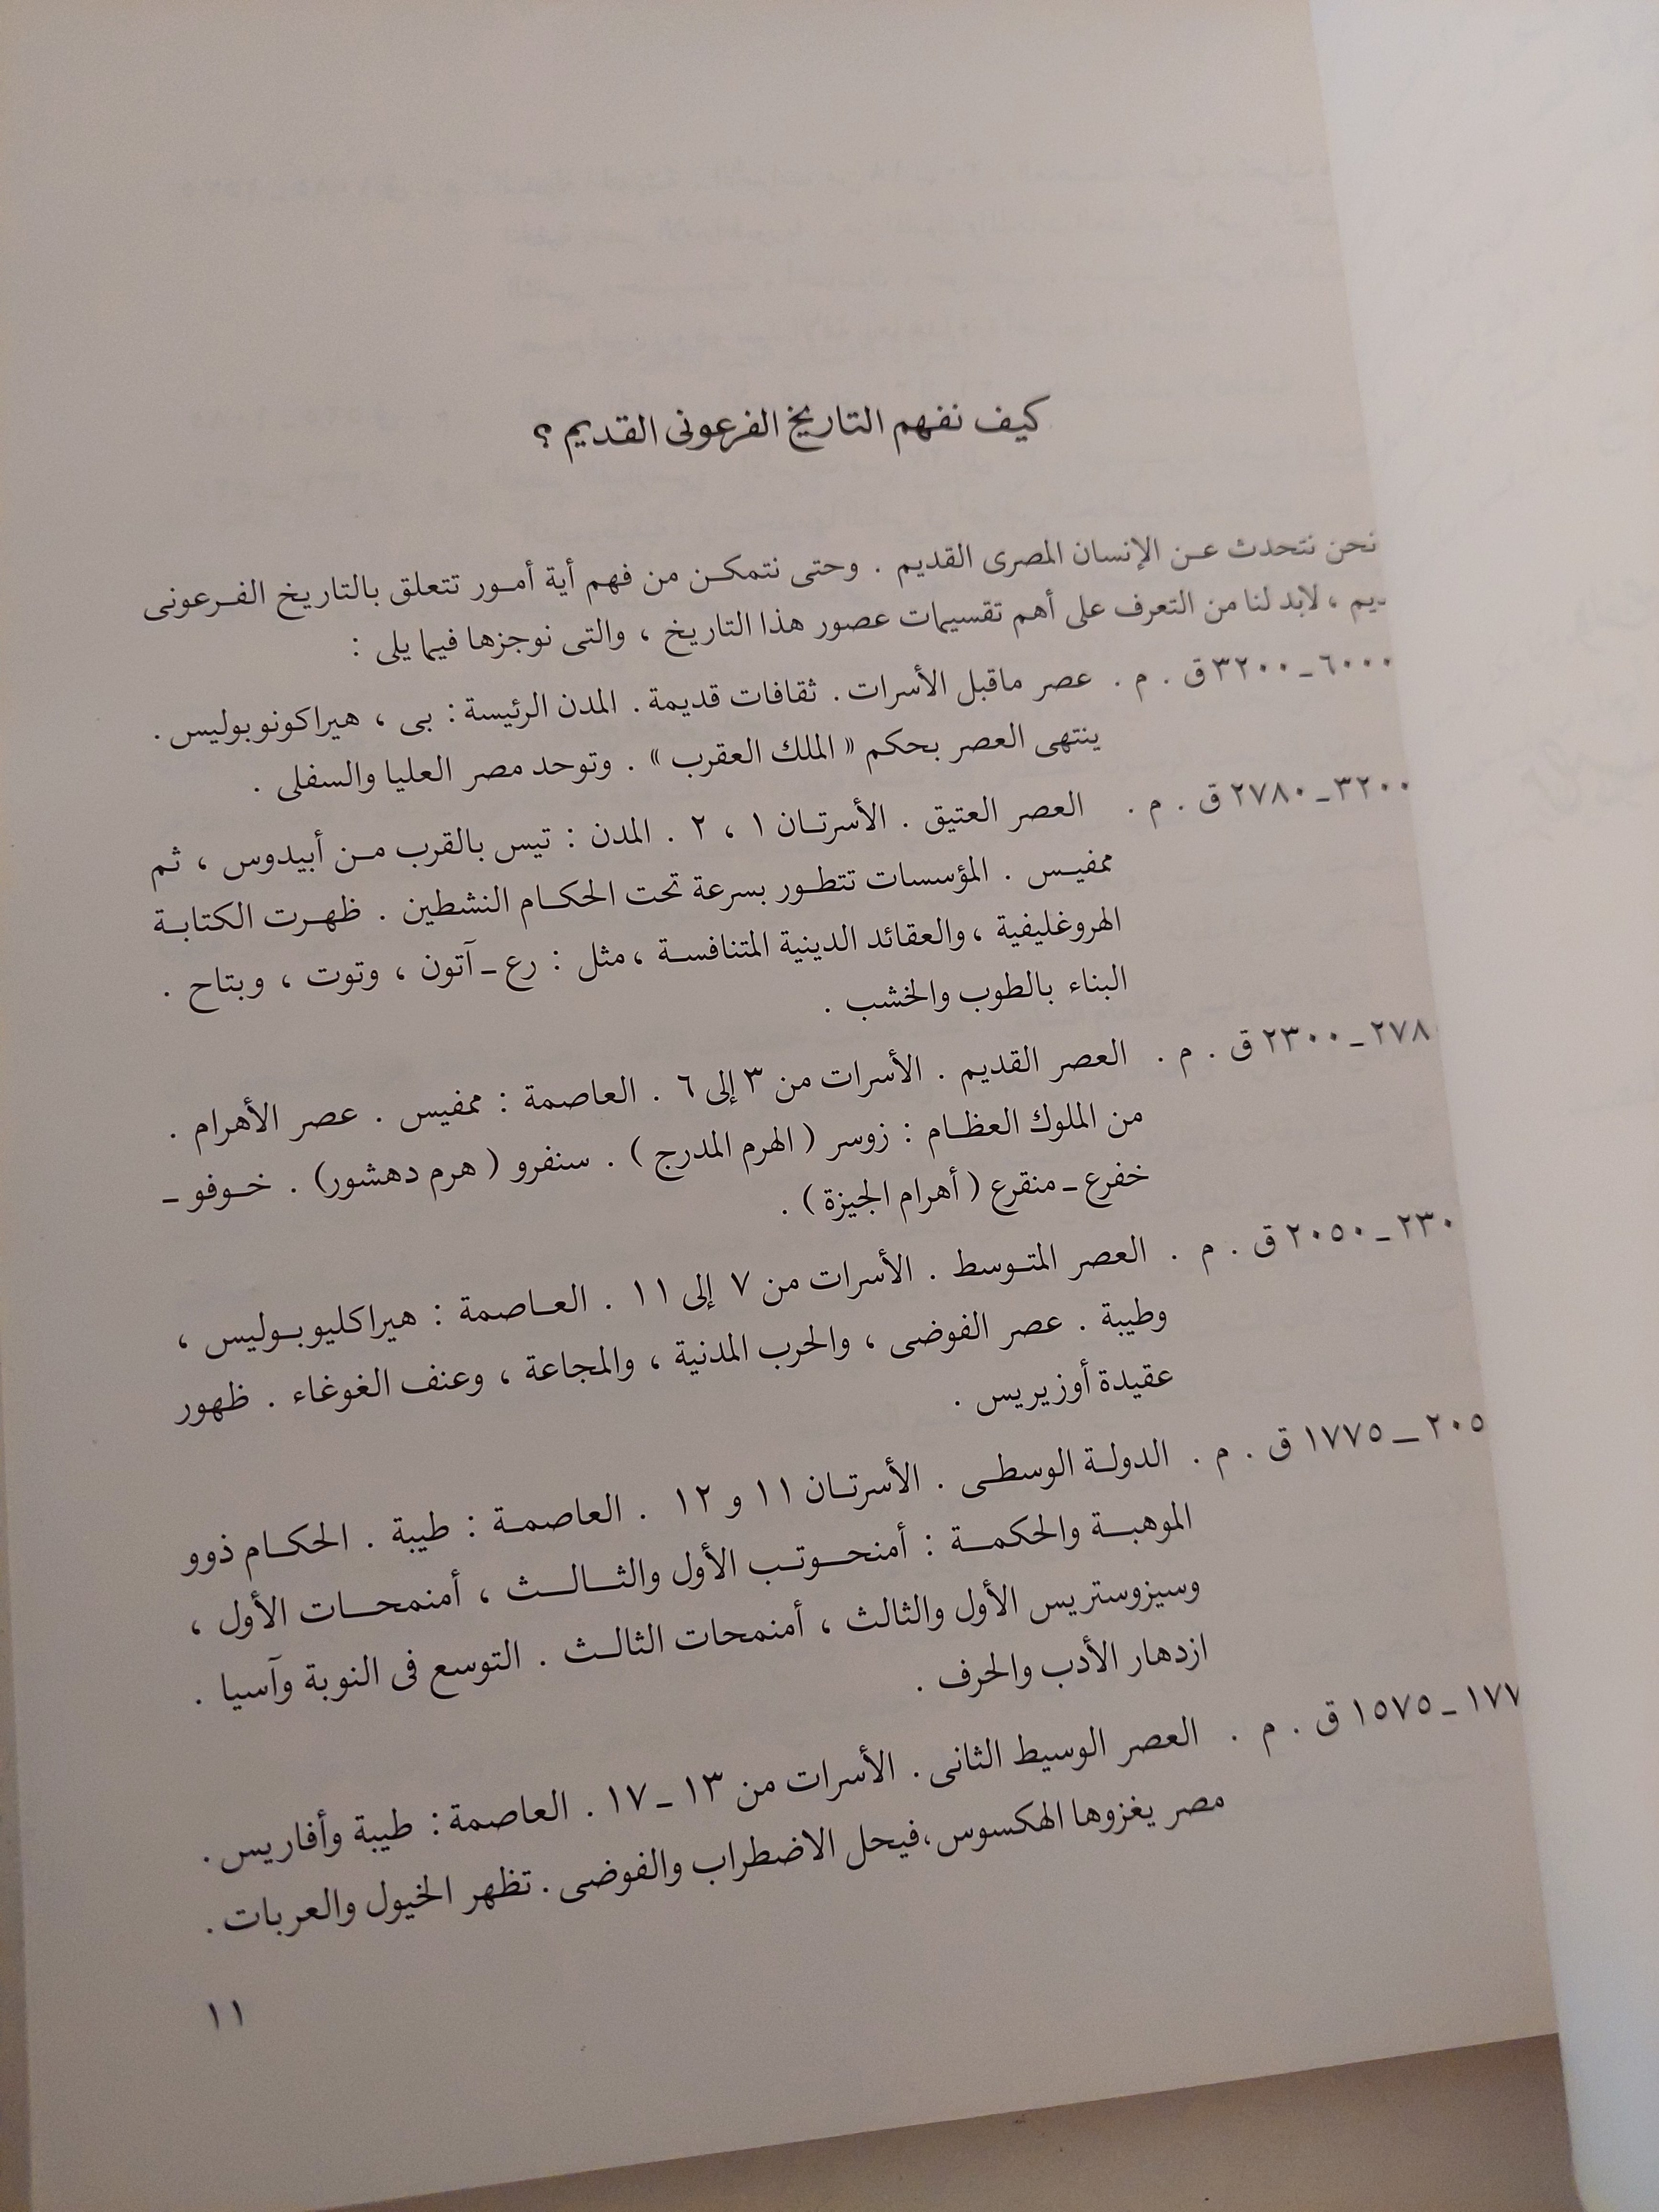 كيف نفهم التاريخ الفرعونى القديم ؟
نحن نتحدث عن الإنسان المصرى القديم . وحتى نتمكن من فهم أية أمور تتعلق بالتاريخ الفرعونى
ـديم ، لابد لنا من التعرف على أهم تقسيمات عصور هذا التاريخ ، والتى نوجزها فيما يلى :
٦٠٠٠ ـ ٣٢٠٠ ق . م . عصر ماقبل الأسرات . ثقافات قديمة . المدن الرئيسة : بى ، هيراكونوبوليس .
ينتهى العصر بحكم « الملك العقرب » . وتوحد مصر العليا والسفلى .
٣٢٠٠ ـ ٢٧٨٠ ق . م . العصر العتيق . الأسرتان ١ ، ٢ . المدن : تيس بالقرب من أبيدوس ، ثم
ممفيس . المؤسسات تتطور بسرعة تحت الحكام النشطين . ظهرت الكتابة
الهروغليفية ، والعقائد الدينية المتنافسة ، مثل : رع ـ آتون ، وتوت ، وبتاح .
البناء بالطوب والخشب .
٢٧٨ ـ ٢٣٠٠ ق . م . العصر القديم . الأسرات من ٣ إلى ٦ . العاصمة : ممفيس . عصر الأهرام .
من الملوك العظام : زوسر ( الهرم المدرج ) . سنفرو ( هرم دهشور ) . خوفو ـ
خفرع ـ منقرع ( أهرام الجيزة ) .
٢٣٠ ـ ٢٠٥٠ ق . م . العصر المتوسط . الأسرات من ٧ إلى ١١ . العاصمة : هيراكليوبوليس ،
وطيبة . عصر الفوضى ، والحرب المدنية ، والمجاعة ، وعنف الغوغاء . ظهور
عقيدة أوزيريس .
٢٠٥ ـ ١٧٧٥ ق . م . الدولة الوسطى . الأسرتان ١١ و ١٢ . العاصمة : طيبة . الحكام ذوو
الموهبة والحكمة : أمنحوتب الأول والثالث ، أمنمحات الأول ،
وسيزوستريس الأول والثالث ، أمنمحات الثالث . التوسع فى النوبة وآسيا .
ازدهار الأدب والحرف .
١٧٧ ـ ١٥٧٥ ق . م . العصر الوسيط الثانى . الأسرات من ١٣ ـ ١٧ . العاصمة : طيبة وأفاريس .
مصر يغزوها الهكسوس ، فيحل الاضطراب والفوضى . تظهر الخيول والعربات .
١١